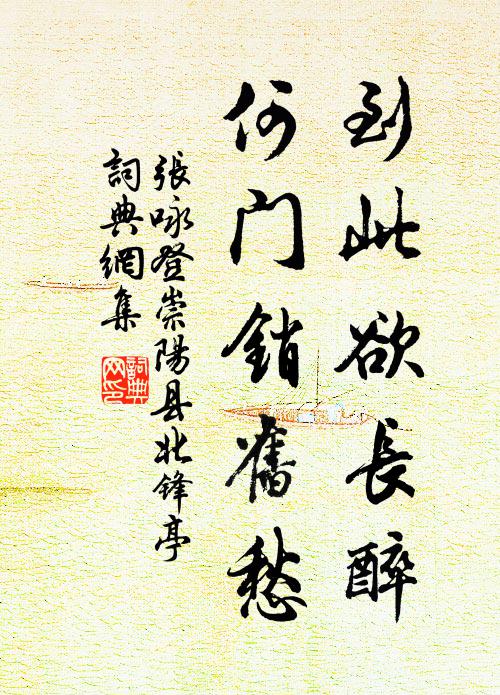 到此欲長醉
何门銷舊愁
張咏登崇陽县北锋亭
詞典網集
詞典网印